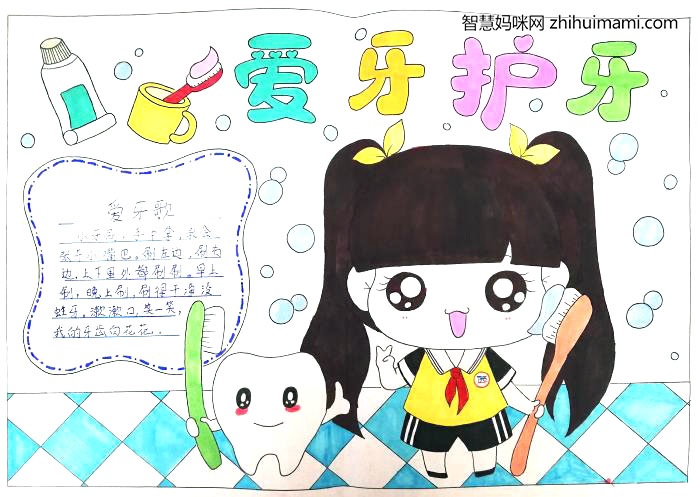 智慧妈咪网 zhihuimami.com
爱牙护牙
爱牙歌
小牙刷,手中拿,
小嘴巴。刷左边,刷右
边,上下里外都刷刷。早上
刷,晚上刷,刷得干净没
蛀牙。漱漱口,笑一笑,
我的牙齿白花花。